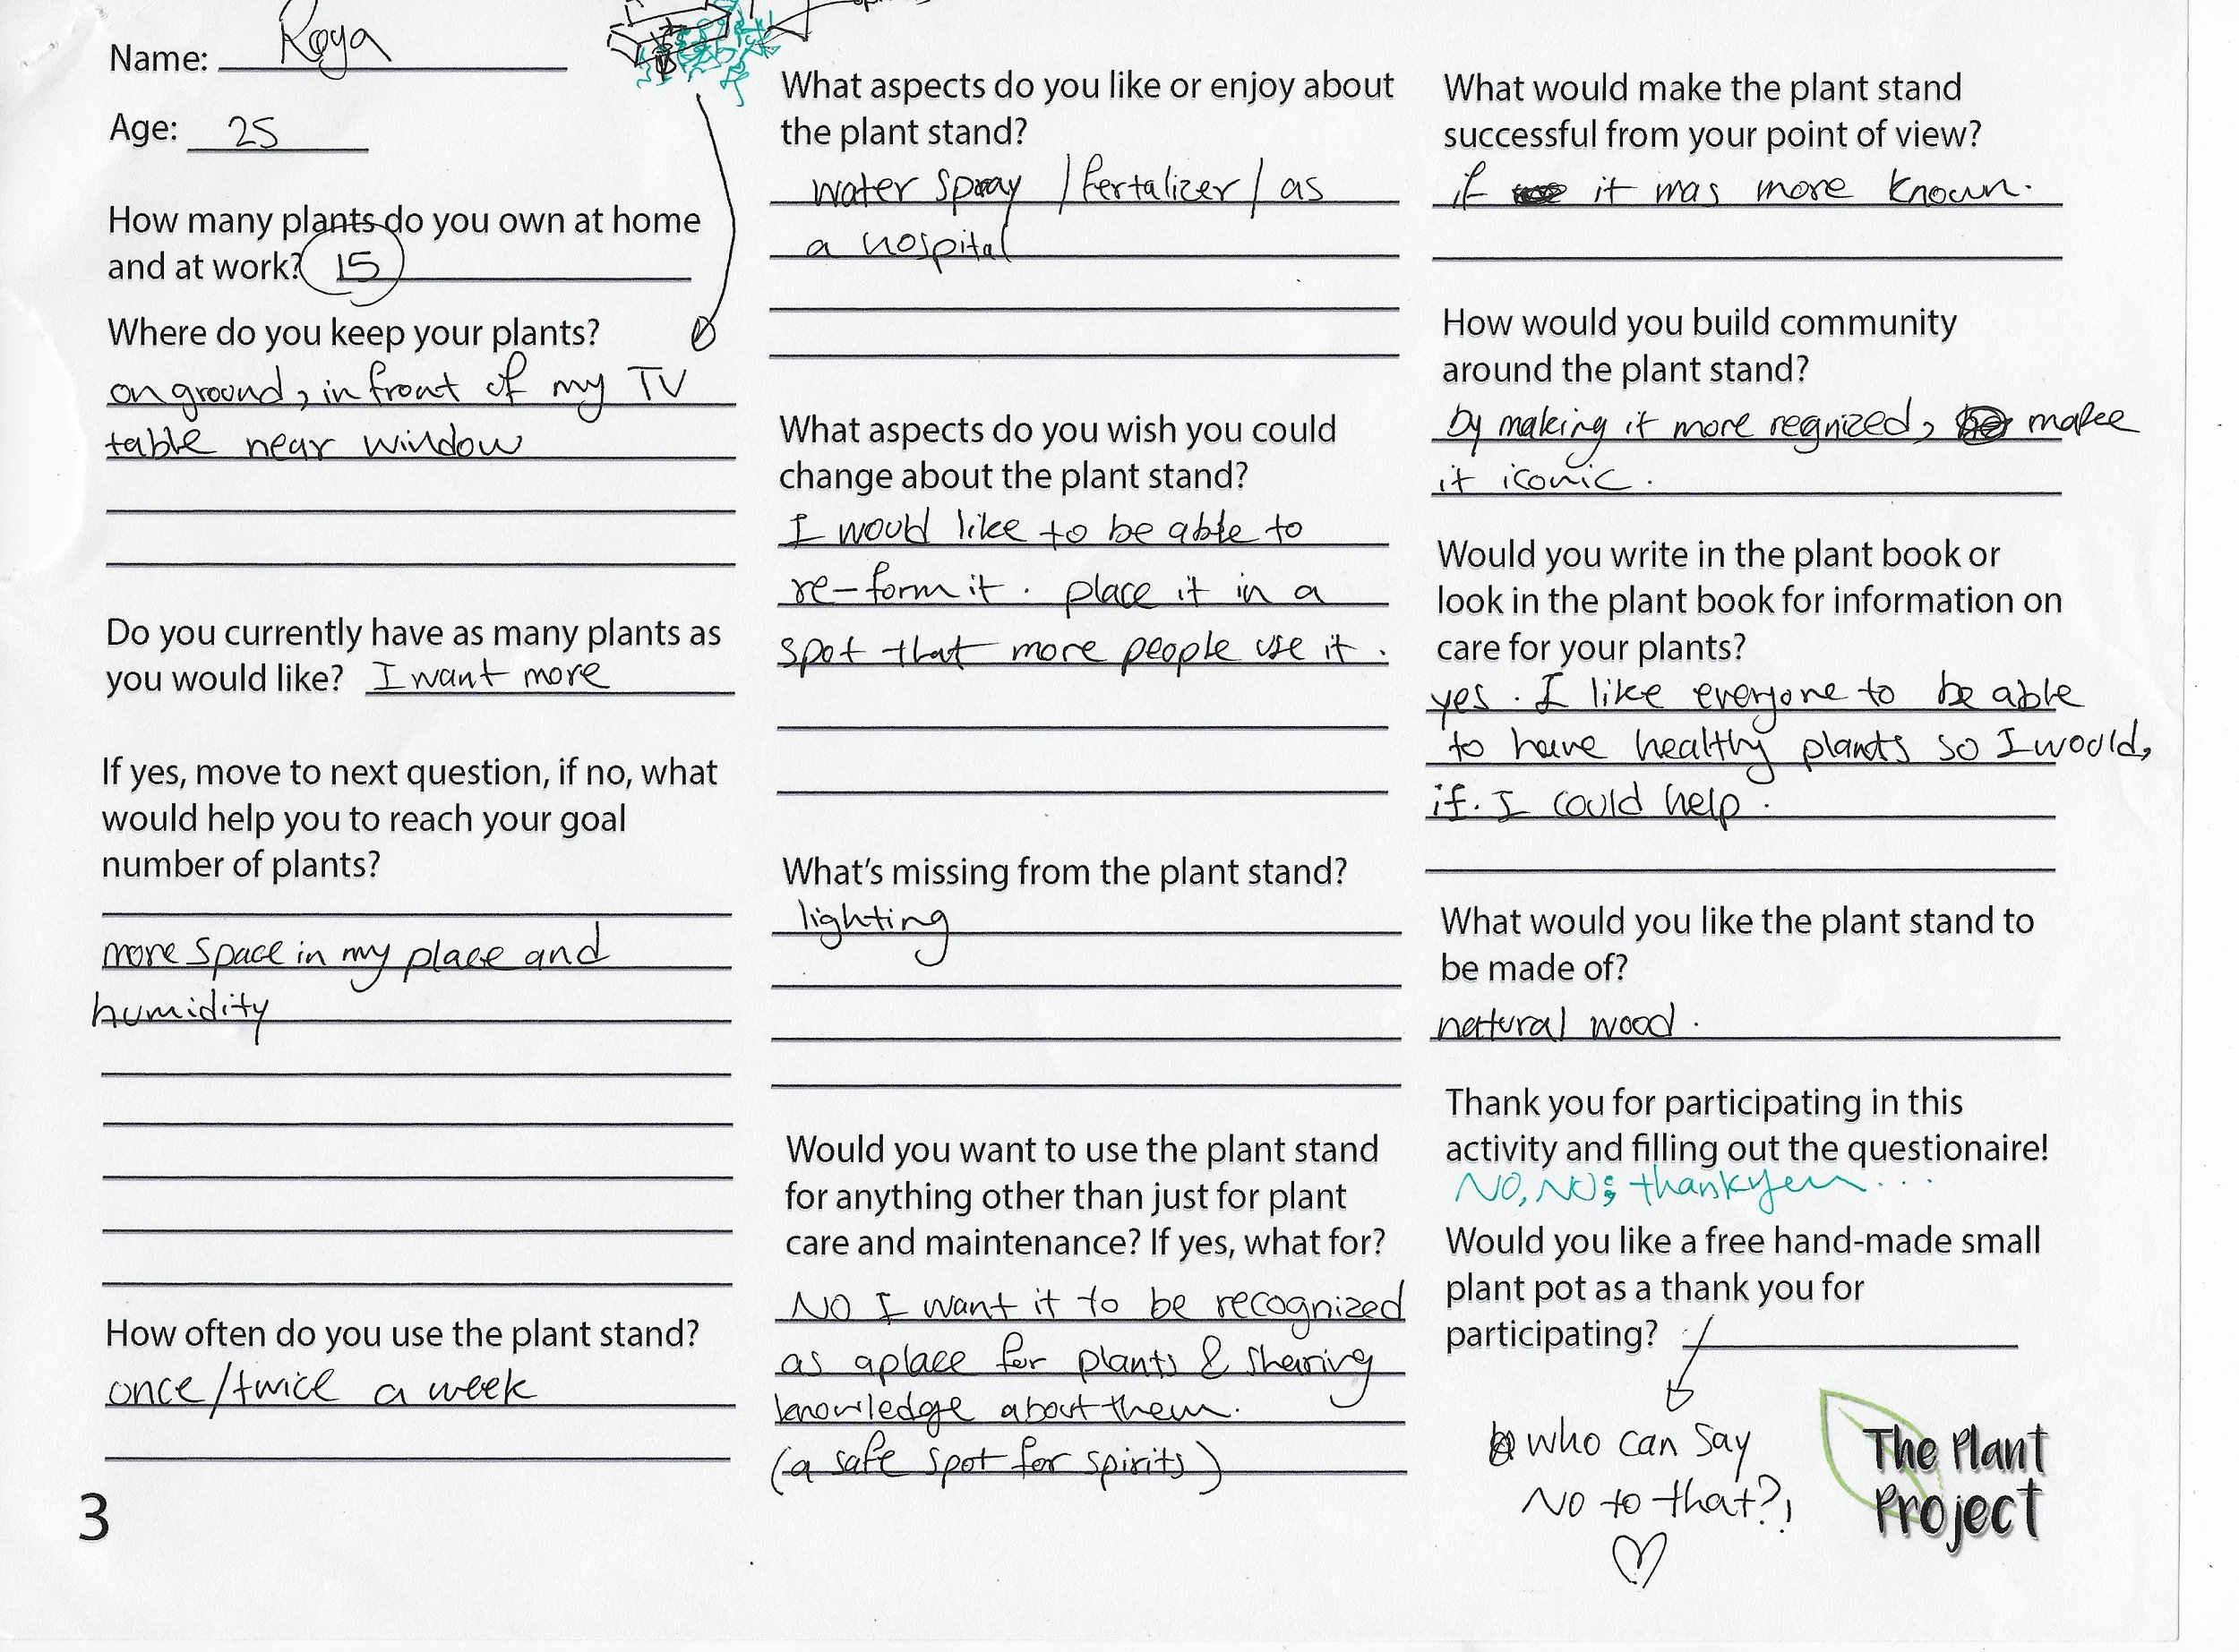 Name: Roya
Age: 25
How many plants do you own at home
and at work? 15
Where do you keep your plants?
on ground, in front of my TV
table near window
Do you currently have as many plants as
you would like? I want more
If yes, move to next question, if no, what
would help you to reach your goal
number of plants?
more space in my place and
humidity
How often do you use the plant stand?
once/twice a week
3
What aspects do you like or enjoy about
the plant stand?
water spray /fertalizer/ as
a hospital
What aspects do you wish you could
change about the plant stand?
I would like to be able to
re-form it. place it in a
spot that more people use it.
What's missing from the plant stand?
lighting
Would you want to use the plant stand
for anything other than just for plant
care and maintenance? If yes, what for?
NO I want it to be recognized
as aplace for plants & sharing
knowledge about them.
(a safe spot for spirits)
What would make the plant stand
successful from your point of view?
if it was more known.
How would you build community
around the plant stand?
by making it more regnized, make
it iconic.
Would you write in the plant book or
look in the plant book for information on
care for your plants?
yes. I like everyone to be able
to have healthy plants so I would,
if. I could help.
What would you like the plant stand to
be made of?
natural wood.
Thank you for participating in this
activity and filling out the questionaire!
NO, NO, thank you...
Would you like a free hand-made small
plant pot as a thank you for
participating?
who can say
NO to that?!
The Plant
Project